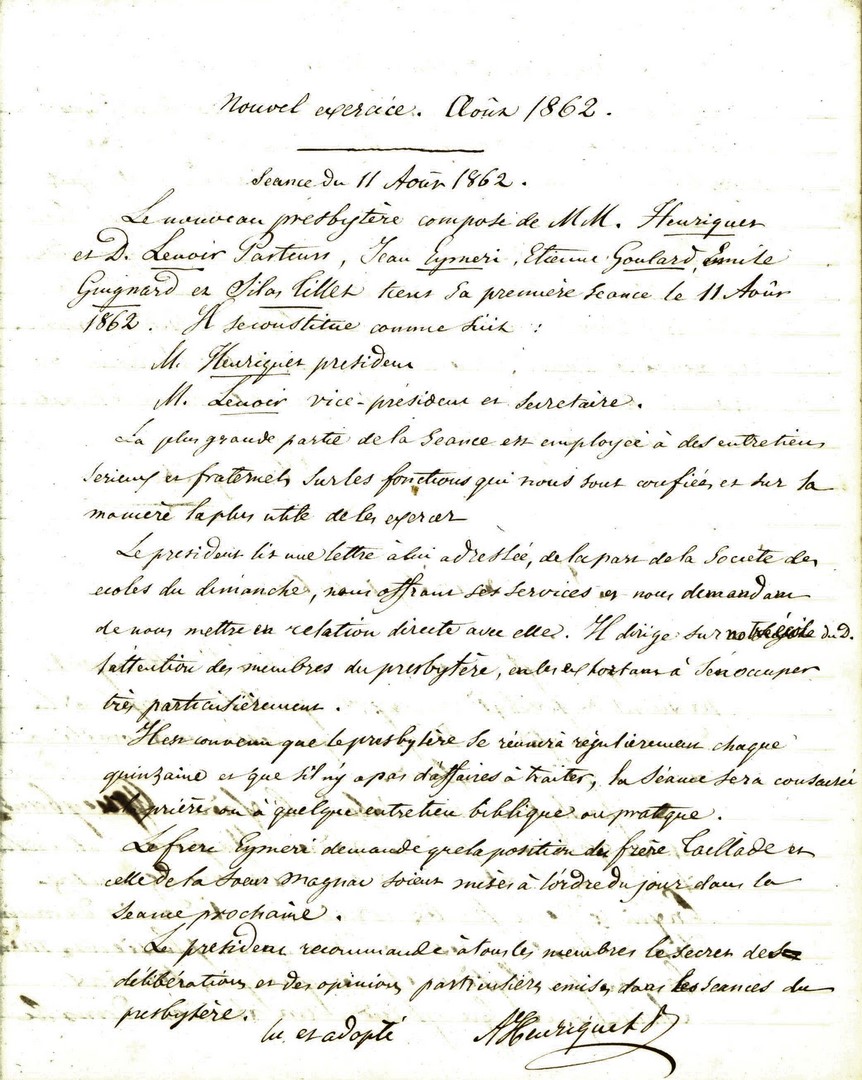 Nouvel exercice. Août 1862.
Séance du 11 Août 1862.
Le nouveau presbytère composé de MM. Henriquet
et D. Lenoir Pasteurs, Jean Eymeri, Etienne Goulard, Emile
Guignard et Silas Tillet tient sa première séance le 11 Août
1862. Il se constitue comme suit :
M. Henriquet president
M. Lenoir vice-président et secretaire.
La plus grande partie de la séance est employée à des entretiens
serieux et fraternels sur les fonctions qui nous sont confiées et sur la
manière la plus utile de les exercer
Le president lit une lettre à lui adressée, de la part de la Société des
ecoles du dimanche, nous offrant ses services et nous demandant
de nous mettre en relation directe avec elle. Il dirige sur notre école du D.
l'attention des membres du presbytère, en les exhortant à s'en occuper
très particulièrement.
Il est convenu que le presbytère se réunira régulièrement chaque
quinzaine et que s'il n'y a pas d'affaires à traiter, la séance sera consacrée
prière ou à quelque entretien biblique ou pratique.
Le frere Eymeri demande que la position du frère Taillade et
celle de la soeur Magnac soient mises à l'ordre du jour dans la
séance prochaine.
Le président recommande à tous les membres le secret des
délibérations et des opinions particulières emises dans les séances du
presbytère.
lu et adopté AHenriquet